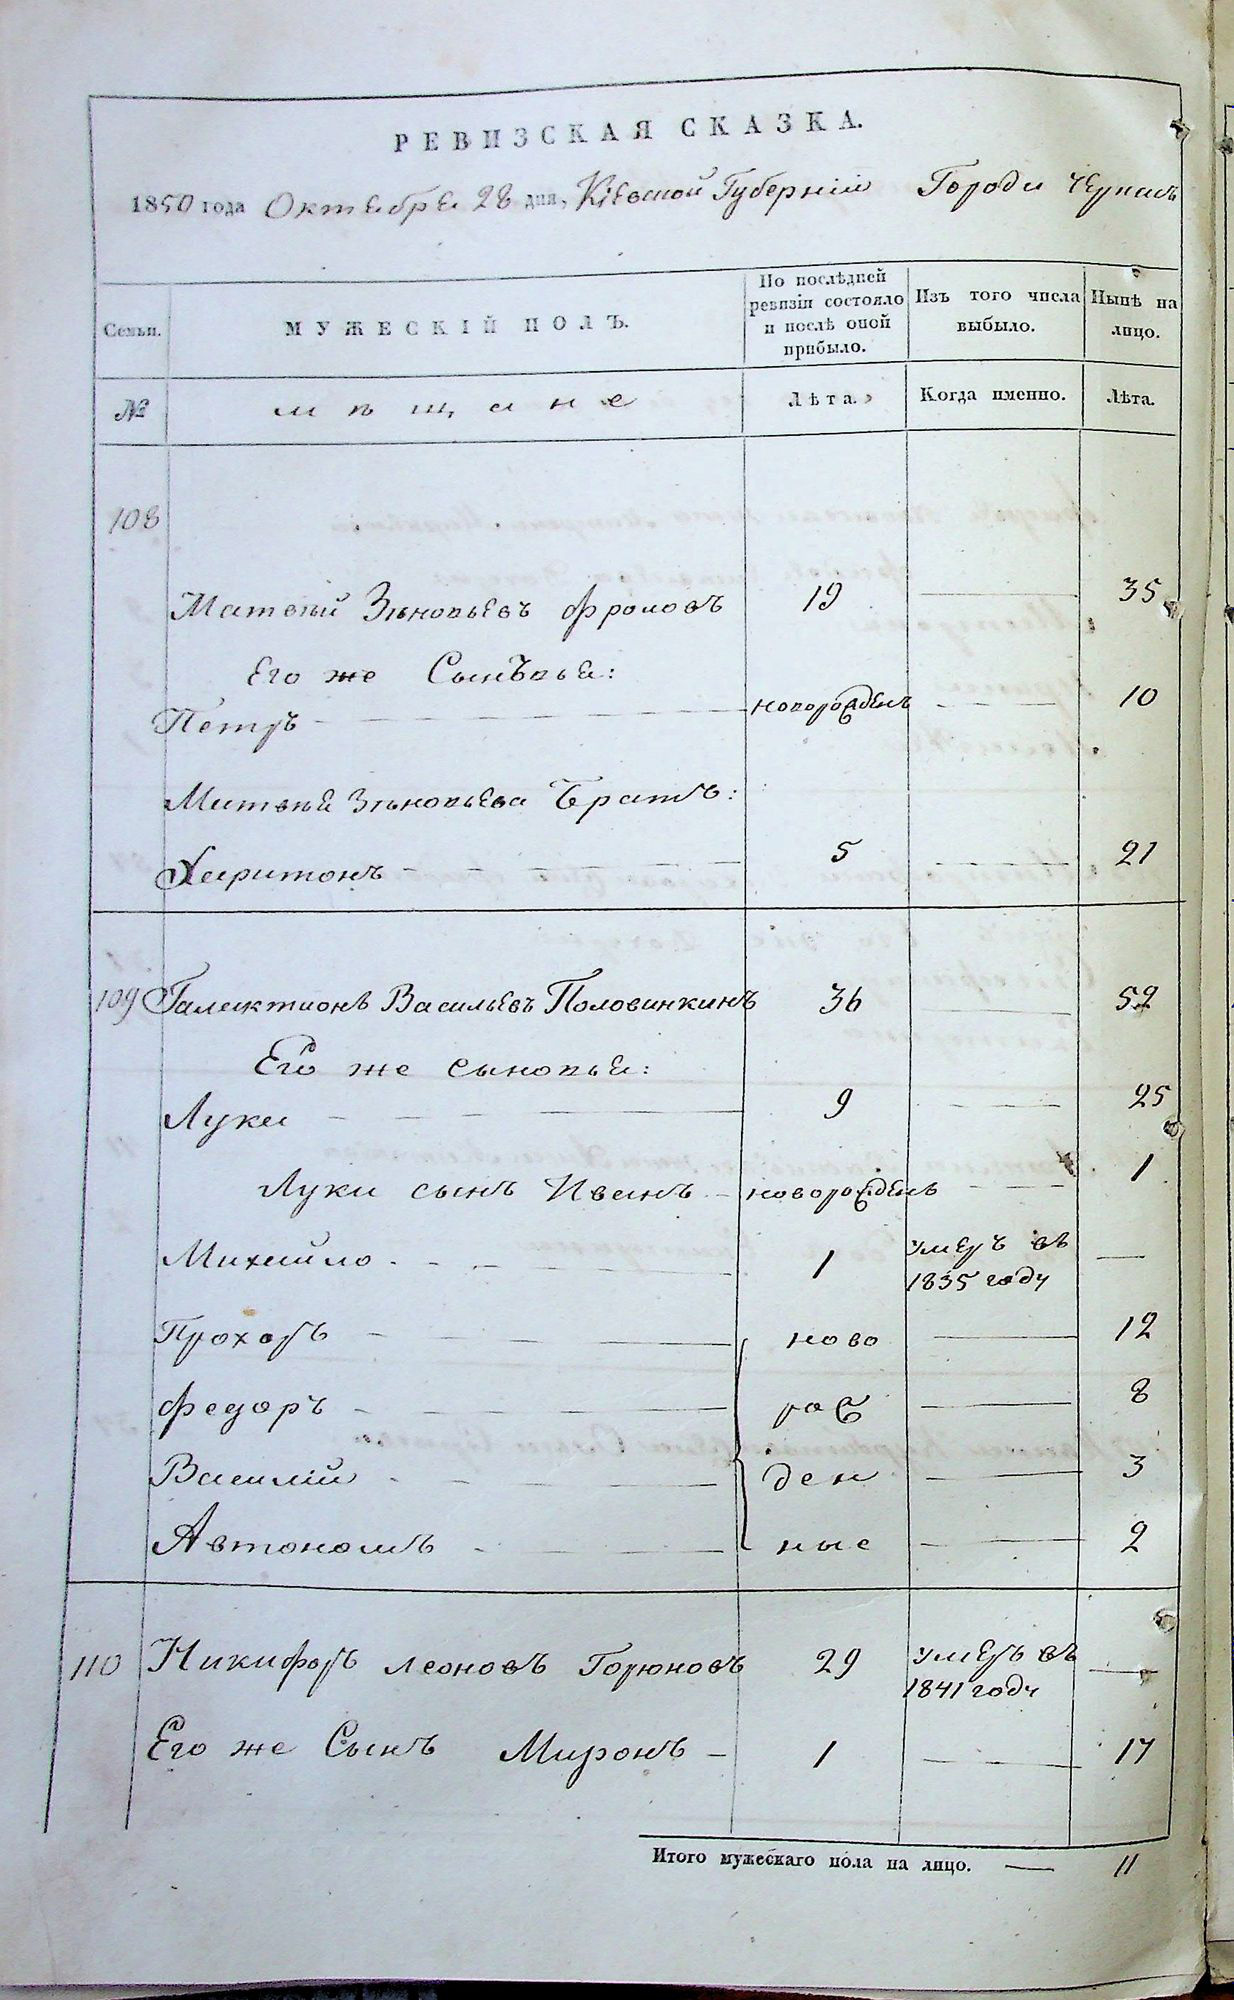 РЕВИЗСКАЯ СКАЗКА.
1850 года Октября 28 дня, Кіевской Губерніи Города Черкасъ
Семьи. МУЖЕСКІЙ ПОЛЪ. По послѣдней ревизіи состояло и послѣ оной прибыло. Изъ того числа выбыло. Нынѣ на лицо.
№ мѣщане Лѣта. Когда именно. Лѣта.
108
Матвѣй Зѣновьевъ Фроловъ 19 35
Его же Сыновья:
Петръ новорожденъ 10
Матвѣя Зѣновьева Братъ:
Харитонъ 5 21
109 Галактионъ Васильевъ Половинкинъ 36 52
Его же сыновья:
Лука 9 25
Луки сынъ Иванъ новорожденъ 1
Михайло 1 умеръ въ 1835 году —
Прохоръ ново 12
Федоръ рож 8
Василій ден 3
Автономъ ные 2
110 Никифоръ Леоновъ Горюновъ 29 умеръ въ 1841 году —
Его же Сынъ Миронъ 1 17
Итого мужескаго пола на лицо. — 11